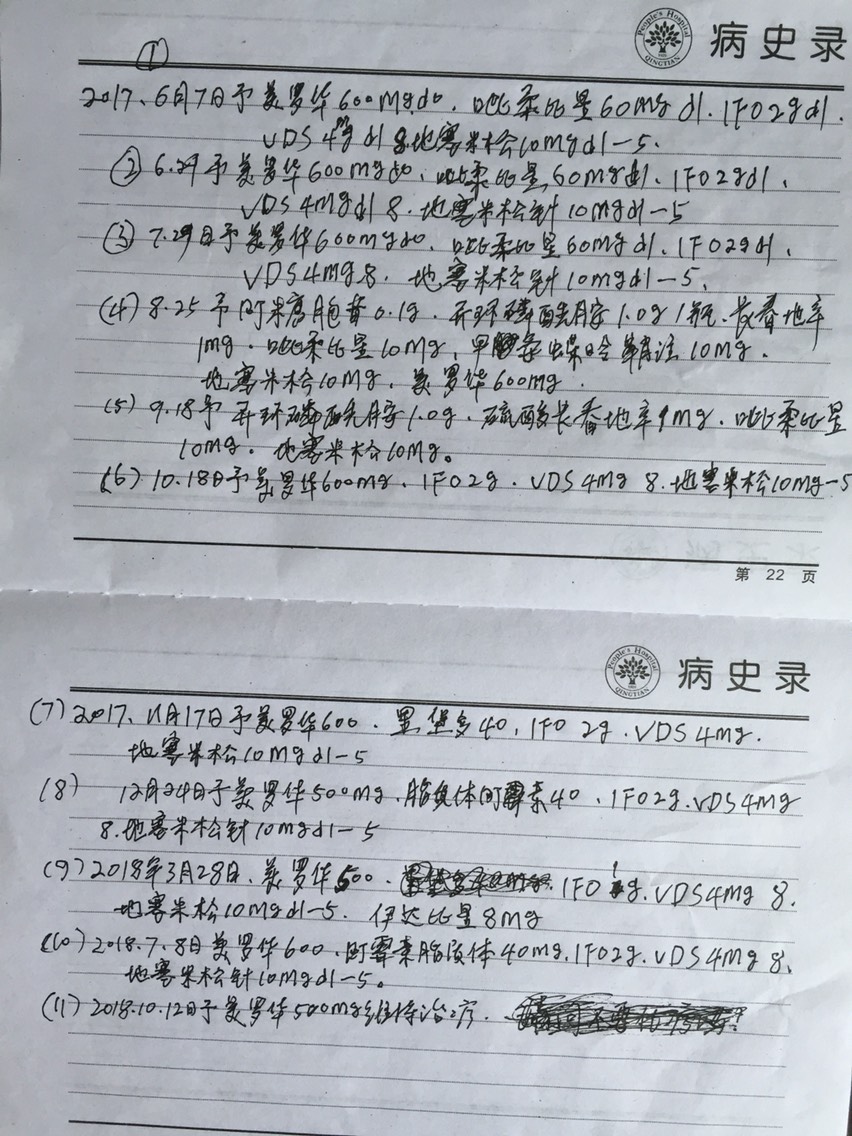 People's Hospital
QINGTIAN
病史录
①
2017、6月7日予美罗华600mgd0、吡柔比星60mg d1、IFO2gd1、
VDS 4mg d1 8.地塞米松10mgd1-5、
② 6.29予美罗华600mgd0、吡柔比星60mgd1、IFO2gd1、
VDS 4mgd1 8.地塞米松针10mgd1-5
③ 7.29日予美罗华600mgd0、吡柔比星60mgd1、IFO2gd1、
VDS4mg8.地塞米松针10mgd1-5、
(4) 8.25予阿糖胞苷0.1g.异环磷酰胺1.0g1瓶.长春地辛
1mg.吡柔比星10mg,甲氨蝶呤 10mg.
地塞米松10mg、美罗华600mg.
(5) 9.18予异环磷酰胺1.0g.硫酸长春地辛 mg.吡柔比星
10mg.地塞米松10mg。
(6) 10.18日予美罗华600mg、IFO2g.VDS4mg 8.地塞米松10mg-5
第 22 页
People's Hospital
QINGTIAN
病史录
(7) 2017、11月17日予美罗华600.里葆多40、IFO 2g.VDS4mg.
地塞米松10mgd1-5
(8) 12月24日予美罗华500mg.脂质体阿霉素40、IFO2g.VDS4mg
8.地塞米松针10mgd1-5
(9) 2018年3月28日、美罗华500. IFO g.VDS4mg 8.
地塞米松10mgd1-5.伊达比星8mg
(10) 2018.7.8日美罗华600、阿霉素脂质体40mg.IFO2g.VDS4mg 8、
地塞米松针10mgd1-5。
(11) 2018.10.12日予美罗华500mg维持治疗.